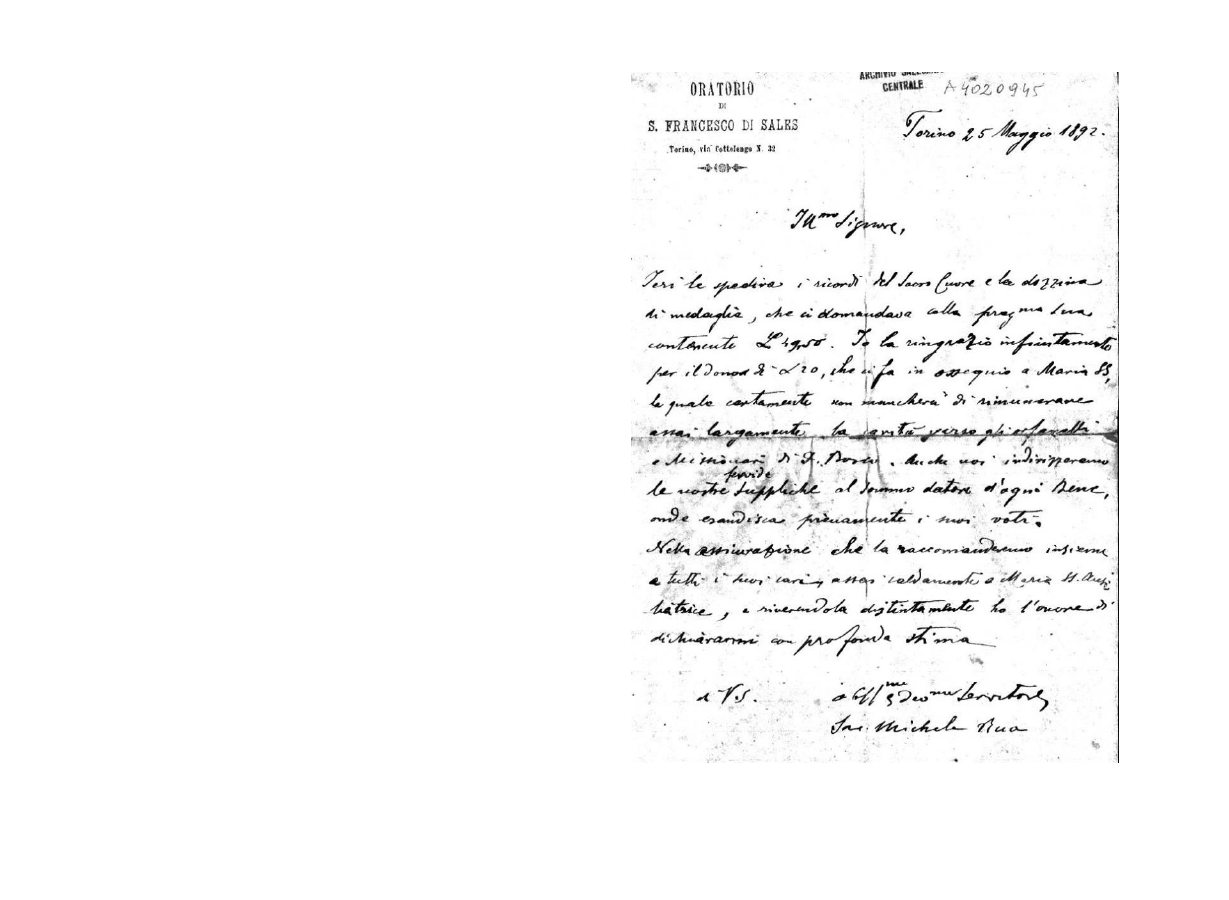 ARCHIVIO SALESIANO
CENTRALE
A4020945
ORATORIO
DI
S. FRANCESCO DI SALES
Torino, via Cottolengo N. 32
Torino 25 Maggio 1892.
Ill.mo Signore,
Ieri le spediva i ricordi del Sacro Cuore e la dozzina
di medaglie, che ci domandava colla preg.ma Sua
contenente L 49,50. Io la ringrazio infinitamente
per il dono di L 20, che ci fa in ossequio a Maria SS,
la quale certamente non mancherà di rimunerare
assai largamente la carità verso gli orfanelli
e Missionari di D. Bosco. Anche noi indirizzeremo
le nostre fervide suppliche al Sommo datore d'ogni Bene,
onde esaudisca pienamente i suoi voti.
Nella assicurazione che la raccomanderemo insieme
a tutti i suoi cari, assai caldamente a Maria SS. Ausi
liatrice, e riverendola distintamente ho l'onore di
dichiararmi con profonda stima
di V. S.
obbl.mo Dev.mo Servitore
Sac. Michele Rua